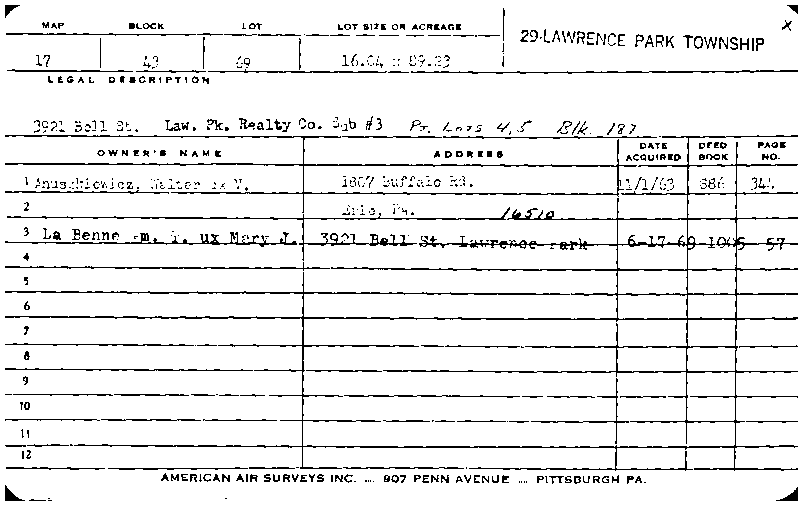 MAP BLOCK LOT LOT SIZE OR ACREAGE
29-LAWRENCE PARK TOWNSHIP X
17 43 69 16.04 x 89.23
LEGAL DESCRIPTION
3921 Bell St. Law. Pk. Realty Co. Sub #3 Pt. Lots 4,5 Blk. 187
OWNER'S NAME ADDRESS DATE ACQUIRED DEED BOOK PAGE NO.
1 Anuszkiewicz, Walter ux V. 1807 Buffalo Rd. 11/1/63 886
2 Erie, Pa. 16510
3 La Benne ux Mary J. 3921 Bell St. Lawrence Park 6-17-69 1005 57
4
5
6
7
8
9
10
11
12
AMERICAN AIR SURVEYS INC. .... 907 PENN AVENUE .... PITTSBURGH PA.